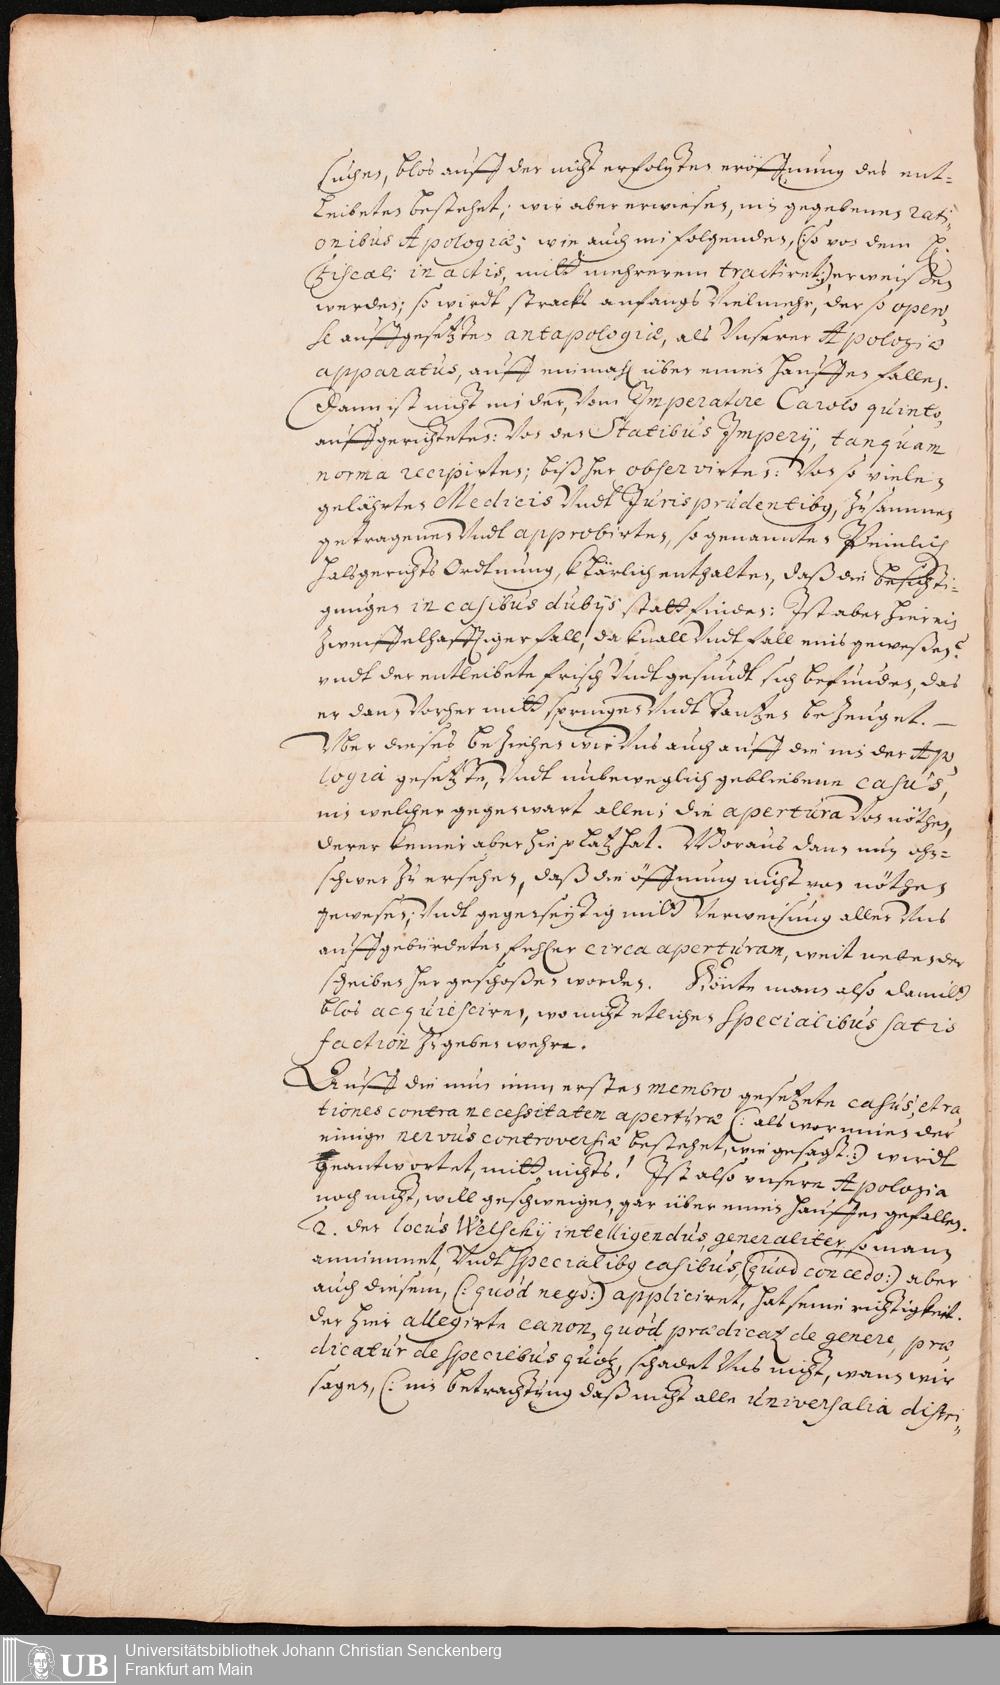 suchen, blos auff der nicht erfolgten eröffnung des ent-
leibeten bestehet; wir aber erwiesen, in gegebenen rati-
onibus Apologiæ; wie auch in folgenden, (:so von dem H.
Fiscali in actis, mitt mehrerem tractiret:) erweisen
werden; so wirdt stracks anfangs Vielmehr, der so open-
se auffgesetzten antapologiæ, als Unserer Apologiæ
apparatus, auff einmahl über einen hauffen fallen.
Dann ist nicht in der, Vom Imperatore Carolo quinto,
auffgerichteten: Von den Statibus Imperij, tanquam
norma recipirten; bißher observirten: Von so vielen
gelährten Medicis Undt Jurisprudentibq, zusammen
getragenen Undt approbirten, so genannten Peinlich
halsgerichts Ordtnung, klärlich enthalten, daß die besichti-
gungen in casibus dubijs statt finden: Ist aber hier ein
zweiffelhafftiger fall, da knall Undt fall eins geweßen?
undt der entleibete frisch Undt gesundt sich befunden, das
er dann Vorher mitt springen Undt tantzen bezeuget. —
Uber dieses beziehen wir Uns auch auff die in der Apo-
logia gesetzte, Undt unbeweglich gebliebene casus,
in welcher gegenwart allein die apertura Von nöthen,
derer keiner aber hie platz hat. Woraus dann nun ohn-
schwer zu ersehen, daß die öffnung nicht von nöthen
gewesen; Undt gegenseytig mitt Verweisung aller Uns
auffgebürdeten fehler circa aperturam, weit neben der
scheiben her geschoßen worden. Könte mann also damitt
blos acquiesciren, wo nicht etlichen specialibus satis
faction zu geben wehre.
Auff die nun inn ersten membro gesetzete casus, et ra
tiones contra necessitatem aperturæ (: als worinnen der
einige nervus controversiæ bestehet, wie gesagt:) wirdt
geantwortet, mitt nichts! Ist also unsere Apologia
noch nicht, will geschweigen, gar über einen hauffen gefallen.
2. der locus Welschij intelligendus generaliter, so mann
annimmet, Undt specialibq casibus, (quod concedo:) aber
auch diesem, (: quod nego:) appliciret, hat seine richtigkeit.
der hier allegirte canon, quod prædicatz de genere, præ-
dicatur de speciebus quoq, schadet Uns nicht, wann wir
sagen, (: in betrachtung daß nicht alle universalia distri-
Universitätsbibliothek Johann Christian Senckenberg
Frankfurt am Main
UB